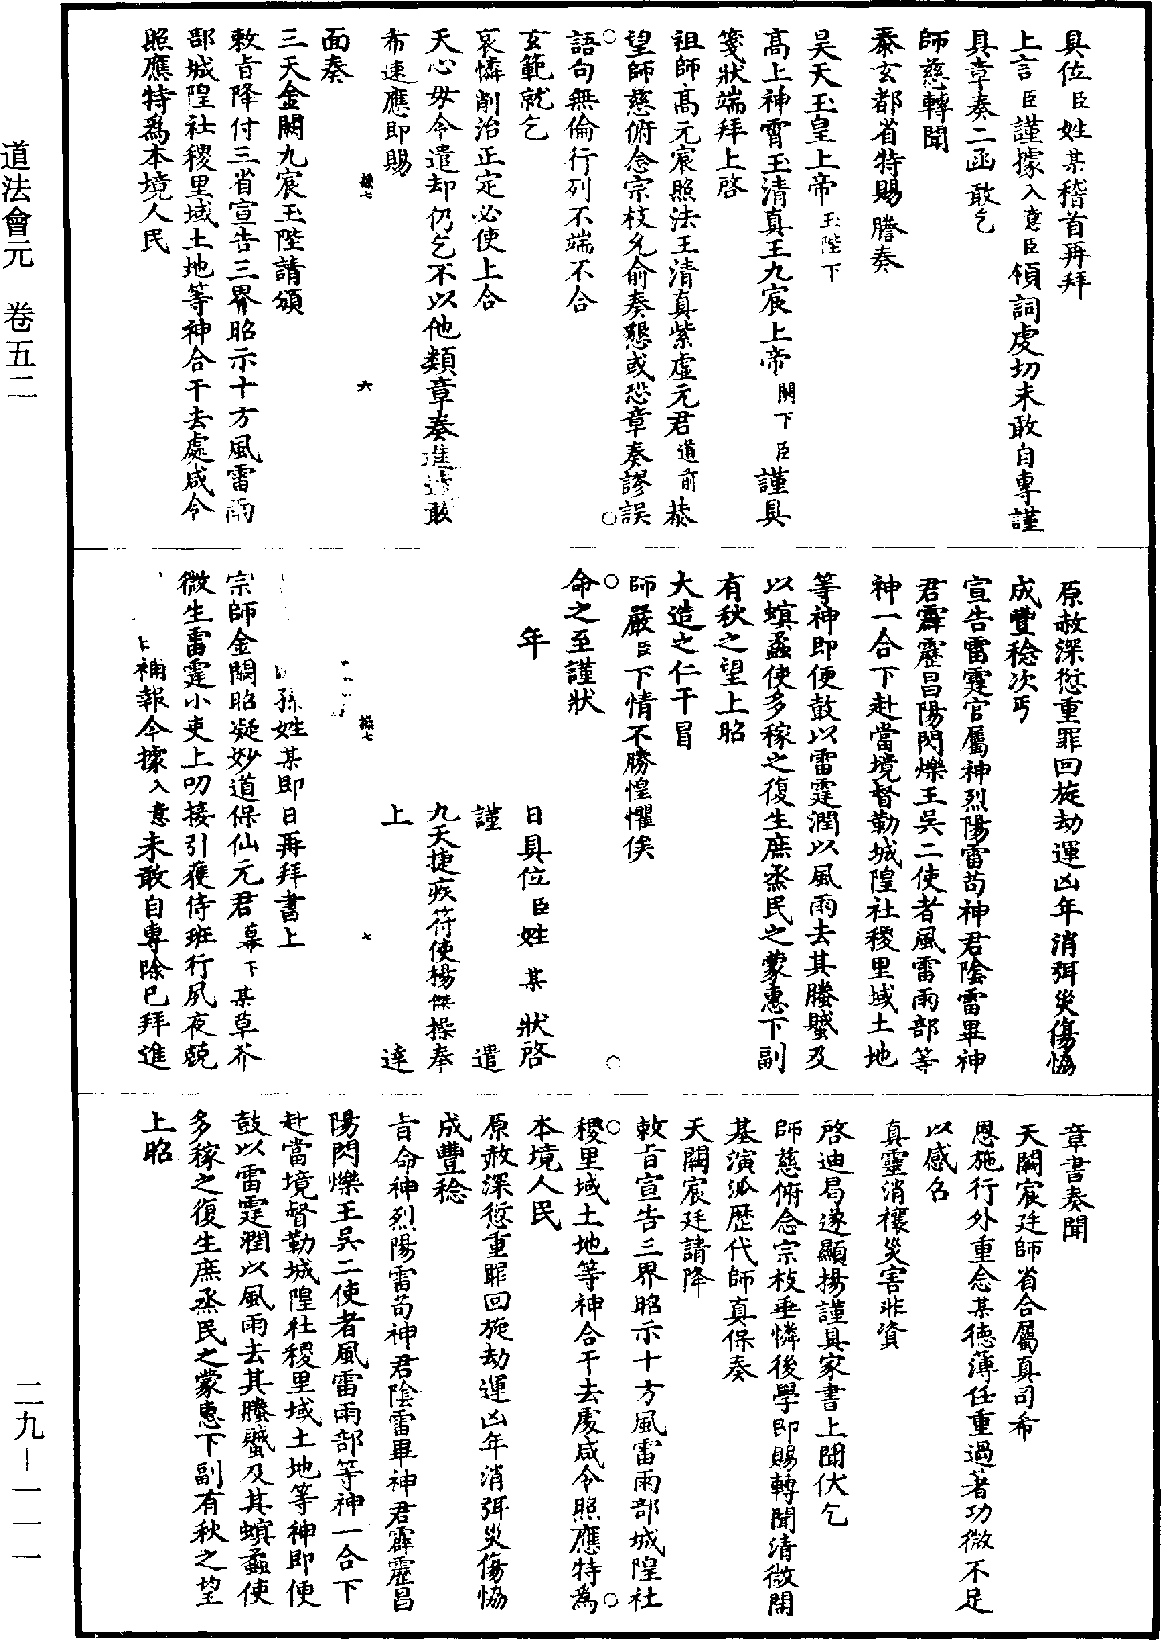 具位臣姓某稽首再拜
上言臣謹據入意臣傾詞虔切未敢自專謹
具章奏二函敢乞
師慈轉聞
泰玄都省特賜謄奏
昊天玉皇上帝玉陛下
高上神霄玉清真王九宸上帝闕下臣謹具
箋狀端拜上啓
祖師高元宸照法王清真紫虛元君道前恭
望師慈俯念宗枝允俞奏懇或恐章奏謬誤
語句無倫行列不端不合
玄範就乞
哀憐削治正定必使上合
天心毋令遣却仍乞不以他類章奏進達敢
希速應即賜
面奏
三天金闕九宸玉陛請頒
敕旨降付三省宣告三界昭示十方風雷雨
部城隍社稷里域土地等神合干去處咸令
照應特爲本境人民
原赦深愆重罪回旋劫運凶年消弭災傷恊
成豐稔次丐
宣告雷霆官屬神烈陽雷苟神君陰雷畢神
君霹靂昌陽閃爍王吳二使者風雷雨部等
神一合下赴當境督勒城隍社稷里域土地
等神即便鼓以雷霆潤以風雨去其螣蟊及
以螟蟊使多稼之復生庶烝民之蒙惠下副
有秋之望上昭
大造之仁干冒
師嚴臣下情不勝惶懼俟
命之至謹狀
年　日具位臣姓某狀啓
謹遣
九天捷疾符使楊傑操奉
上達
孫姓某即日再拜書上
宗師金闕昭凝妙道保仙元君幕下某草芥
微生雷霆小吏上叨接引獲侍班行夙夜兢
補報今據入意未敢自專除已拜進
章書奏聞
天闕宸廷師省合屬真司希
恩施行外重念某德薄任重過著功微不足
以感召
真靈消禳災害非資
啓迪曷遂顯揚謹具家書上聞伏乞
師慈俯念宗枝垂憐後學即賜轉聞清微開
基演派歷代師真保奏
天闕宸廷請降
敕旨宣告三界昭示十方風雷雨部城隍社
稷里域土地等神合干去處咸令照應特爲
本境人民
原赦深愆重罪回旋劫運凶年消弭災傷恊
成豐稔
旨命神烈陽雷苟神君陰雷畢神君霹靂昌
陽閃爍王吳二使者風雷雨部等神一合下
赴當境督勒城隍社稷里域土地等神即便
鼓以雷霆潤以風雨去其螣蟊及其螟蟊使
多稼之復生庶烝民之蒙惠下副有秋之望
上昭
道法會元　卷五二
二九－一一一